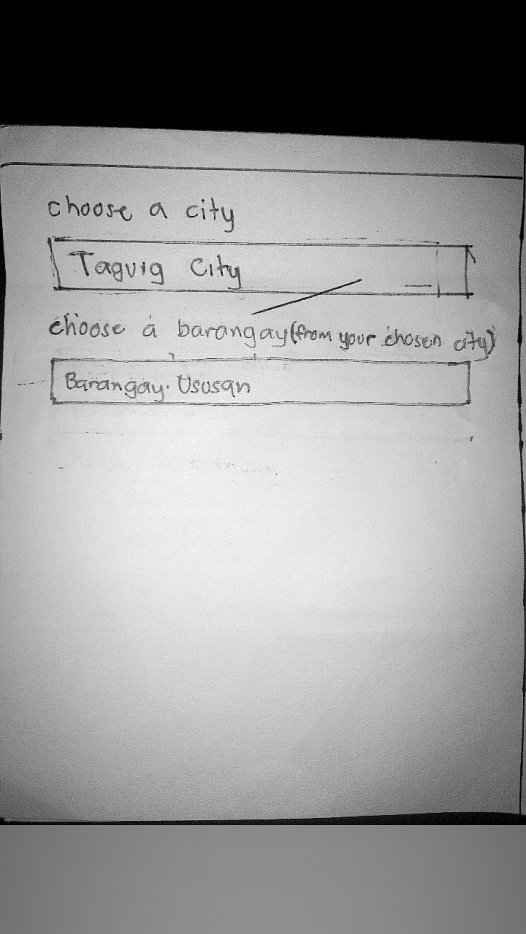 choose a city
Taguig City
choose a barangay (from your chosen city)
Barangay. Ususan